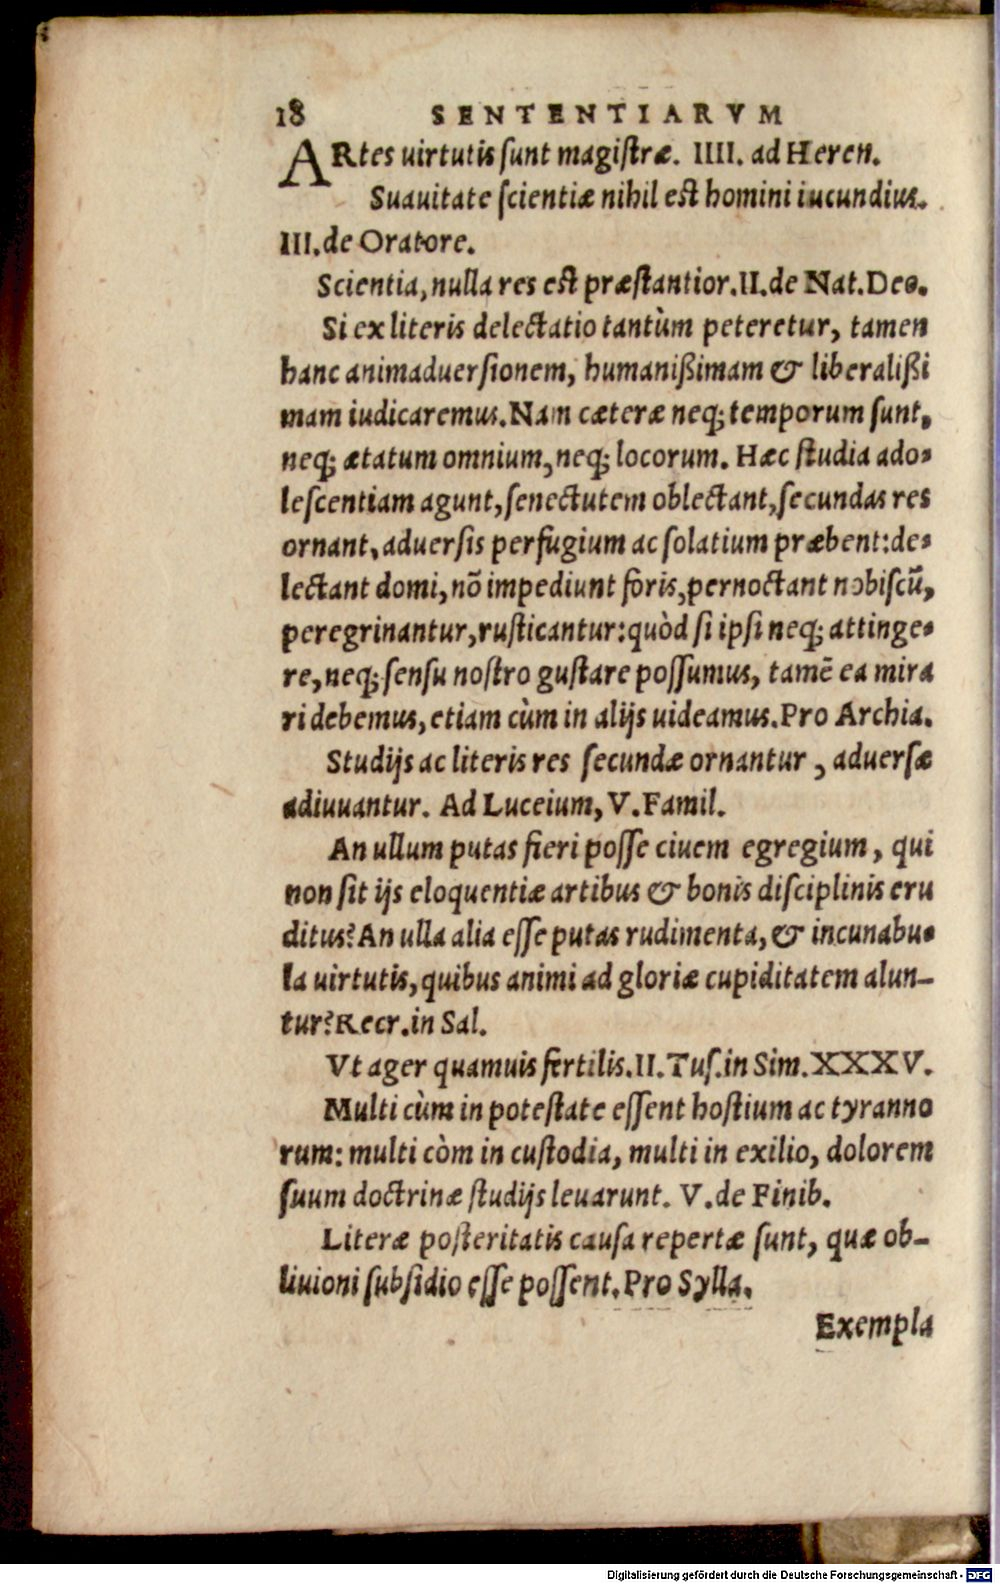 18 SENTENTIARVM
ARtes uirtutis ſunt magiſtræ. IIII. ad Heren.
Suauitate ſcientiæ nihil eſt homini iucundius.
III. de Oratore.
Scientia, nulla res eſt præſtantior. II. de Nat. Deo.
Si ex literis delectatio tantùm peteretur, tamen
hanc animaduerſionem, humanißimam & liberalißi
mam iudicaremus. Nam cæteræ neq; temporum ſunt,
neq; ætatum omnium, neq; locorum. Hæc ſtudia ado-
leſcentiam agunt, ſenectutem oblectant, ſecundas res
ornant, aduerſis perfugium ac ſolatium præbent: de-
lectant domi, nõ impediunt foris, pernoctant nobiſcũ,
peregrinantur, ruſticantur: quòd ſi ipſi neq; attinge-
re, neq; ſenſu noſtro guſtare poſſumus, tamẽ ea mira
ri debemus, etiam cùm in alijs uideamus. Pro Archia.
Studijs ac literis res ſecundæ ornantur, aduerſæ
adiuuantur. Ad Luceium, V. Famil.
An ullum putas fieri poſſe ciuem egregium, qui
non ſit ijs eloquentiæ artibus & bonis diſciplinis eru
ditus? An ulla alia eſſe putas rudimenta, & incunabu-
la uirtutis, quibus animi ad gloriæ cupiditatem alun-
tur? Recr. in Sal.
Vt ager quamuis fertilis. II. Tuſ. in Sim. XXXV.
Multi cùm in poteſtate eſſent hoſtium ac tyranno
rum: multi còm in cuſtodia, multi in exilio, dolorem
ſuum doctrinæ ſtudijs leuarunt. V. de Finib.
Literæ poſteritatis cauſa repertæ ſunt, quæ ob-
liuioni ſubſidio eſſe poſſent. Pro Sylla.
Exempla
Digitalisierung gefördert durch die Deutsche Forschungsgemeinschaft - DFG